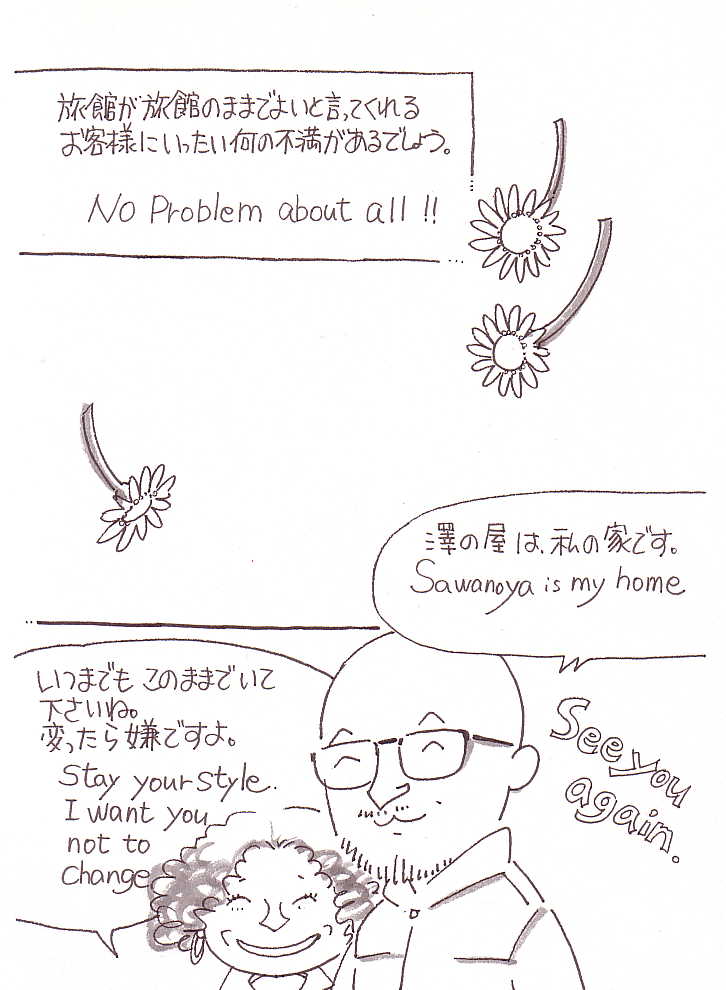 旅館が旅館のままでよいと言ってくれる
お客様にいったい何の不満があるでしょう。
No Problem about all !!
澤の屋は、私の家です。
Sawanoya is my home
いつまでも このままでいて
下さいね。
変ったら嫌ですよ。
Stay your style.
I want you
not to
Change
See you
again.